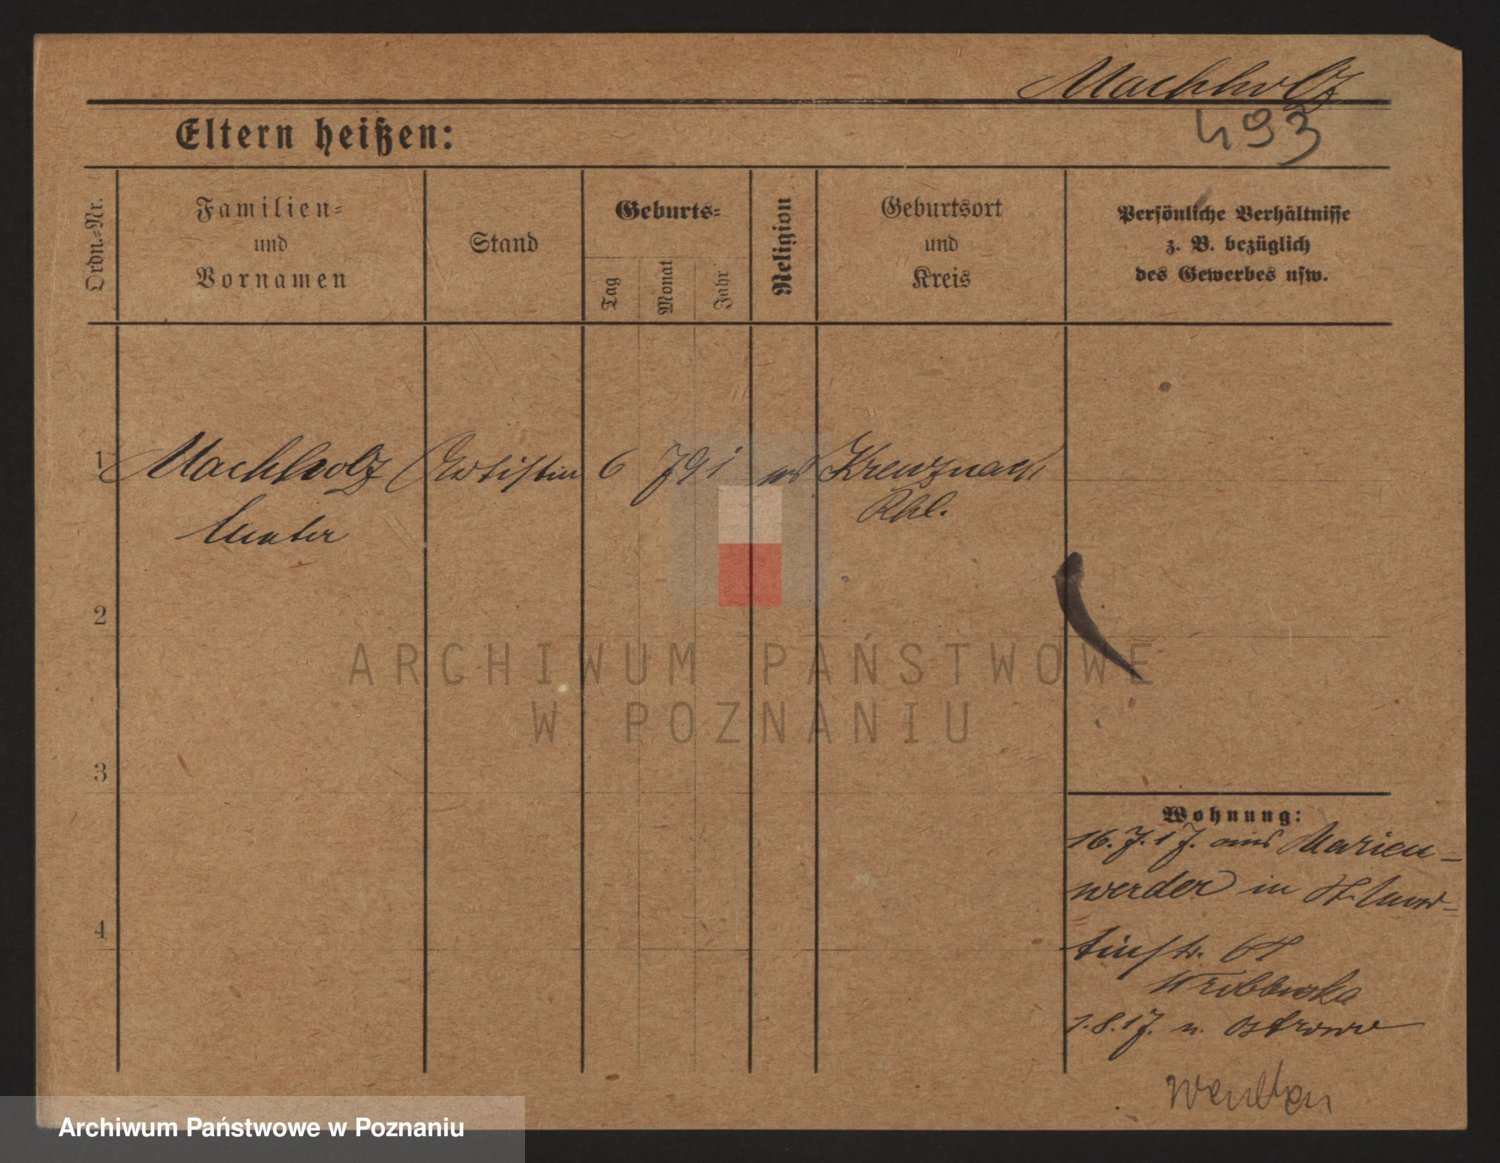 Machholz
493
Eltern heißen:
Ordn.-Nr.
Familien-
und
Vornamen
Stand
Geburts-
Tag
Monat
Jahr
Religion
Geburtsort
und
Kreis
Persönliche Verhältnisse
z. B. bezüglich
des Gewerbes usw.
1 Machholz Artistin 6 7 91 Kreuznach
Rhl.
2
ARCHIWUM PAŃSTWOWE
W POZNANIU
3
Wohnung:
16.7.17. aus Marien-
werder in St. Mar-
4
tinstr. 68
1.8.17. n. Ostrowo
wenden
Archiwum Państwowe w Poznaniu